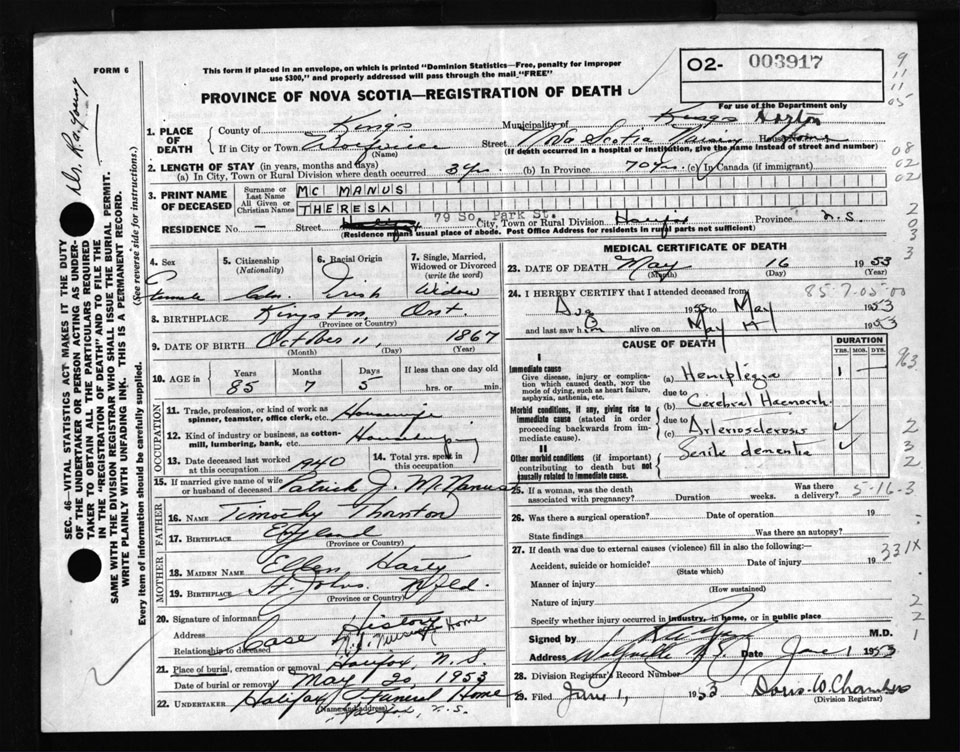 FORM 6
This form if placed in an envelope, on which is printed "Dominion Statistics—Free, penalty for improper
use $300," and properly addressed will pass through the mail "FREE"
O2- 003917
PROVINCE OF NOVA SCOTIA—REGISTRATION OF DEATH
For use of the Department only
9
11
11
05
08
02
02
2
0
3
3
1. PLACE OF DEATH
County of Kings
Municipality of Kings Horton
If in City or Town Wolfville (Name)
Street House Home
(If death occurred in a hospital or institution, give the name instead of street and number)
2. LENGTH OF STAY (in years, months and days)
(a) In City, Town or Rural Division where death occurred 3 yrs. (b) In Province 70 yrs. (c) In Canada (if immigrant)
3. PRINT NAME OF DECEASED
Surname or Last Name MC MANUS
All Given or Christian Names THERESA
79 So. Park St.
RESIDENCE No. — Street Halifax City, Town or Rural Division Halifax Province N.S.
(Residence means usual place of abode. Post Office Address for residents in rural parts not sufficient)
4. Sex
female
5. Citizenship (Nationality)
Cdn.
6. Racial Origin
Irish
7. Single, Married, Widowed or Divorced (write the word)
Widow
8. BIRTHPLACE Kingston, Ont.
(Province or Country)
9. DATE OF BIRTH October 11, 1867
(Month) (Day) (Year)
10. AGE in Years Months Days If less than one day old
85 7 5 hrs. or min.
OCCUPATION
11. Trade, profession, or kind of work as spinner, teamster, office clerk, etc. Housewife
12. Kind of industry or business, as cotton-mill, lumbering, bank, etc. Housekeeping
13. Date deceased last worked at this occupation 1940
14. Total yrs. spent in this occupation
15. If married give name of wife or husband of deceased Patrick J. McManus
FATHER
16. NAME Timothy Thornton
17. BIRTHPLACE England
(Province or Country)
MOTHER
18. MAIDEN NAME Ellen
19. BIRTHPLACE St. Johns Nfld.
(Province or Country)
20. Signature of informant
Address Case History
Relationship to deceased N.S. Nursing Home
21. Place of burial, cremation or removal Halifax, N.S.
Date of burial or removal May 20, 1953
22. UNDERTAKER Halifax Funeral Home
(Name and address) Halifax, N.S.
MEDICAL CERTIFICATE OF DEATH
23. DATE OF DEATH May 16 1953
(Month) (Day)
24. I HEREBY CERTIFY that I attended deceased from
85-7-05-00
Aug 1953 to May 1953
and last saw him alive on May 1953
CAUSE OF DEATH
DURATION
YRS. MOS. DYS.
I
Immediate cause
Give disease, injury or complication which caused death, NOT the mode of dying, such as heart failure, asphyxia, asthenia, etc.
(a) Hemiplegia 1 —
due to
(b) Cerebral Haemorrh.
Morbid conditions, if any, giving rise to immediate cause (stated in order proceeding backwards from immediate cause).
due to
(c) Arteriosclerosis ✓
II
Other morbid conditions (if important) contributing to death but not causally related to immediate cause.
Senile dementia ✓
963
2
3
2
25. If a woman, was the death associated with pregnancy? Duration weeks. Was there a delivery?
5-16-3
26. Was there a surgical operation? Date of operation 19
State findings Was there an autopsy?
27. If death was due to external causes (violence) fill in also the following:—
Accident, suicide or homicide? (State which) Date of injury 19
331X
Manner of injury (How sustained)
Nature of injury
Specify whether injury occurred in industry, in home, or in public place
2
2
1
Signed by M.D.
Address Wolfville N.S. Date June 1 1953
28. Division Registrar's Record Number
29. Filed June 1, 1953 Doris W. Chambers
(Division Registrar)
Dr. R.A. Young
SEC. 46—VITAL STATISTICS ACT MAKES IT THE DUTY
OF THE UNDERTAKER OR PERSON ACTING AS UNDER-
TAKER TO OBTAIN ALL THE PARTICULARS REQUIRED
IN THE "REGISTRATION OF DEATH" AND TO FILE THE
SAME WITH THE DIVISION REGISTRAR WHO SHALL ISSUE THE BURIAL PERMIT.
WRITE PLAINLY WITH UNFADING INK. THIS IS A PERMANENT RECORD.
Every item of information should be carefully supplied. (See reverse side for instructions.)